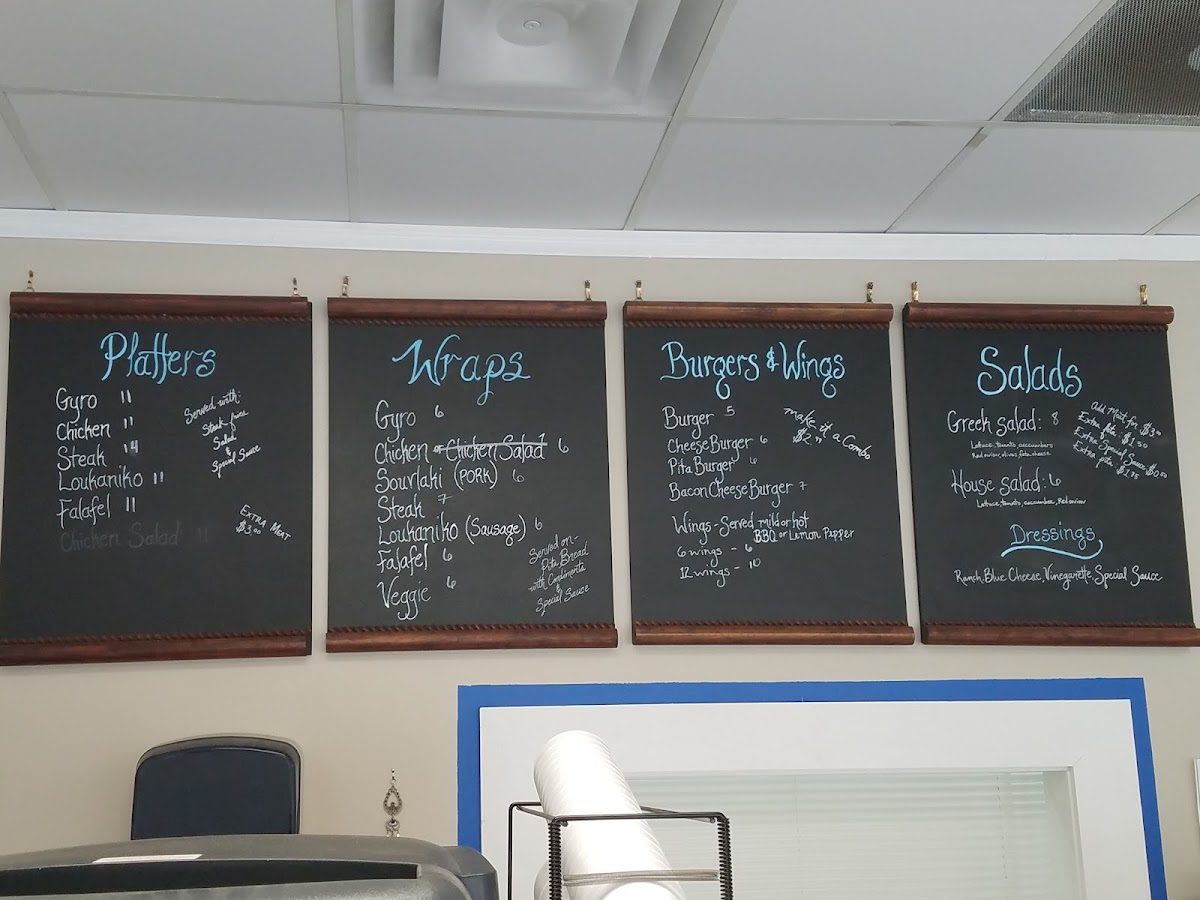 Platters
Gyro 11
Chicken 11
Steak 14
Loukaniko 11
Falafel 11
Chicken Salad 11
Served with:
Steak fries
Salad
&
Special Sauce
EXTRA MEAT
$3.00
Wraps
Gyro 6
Chicken or Chicken Salad 6
Souvlaki (PORK) 6
Steak 7
Loukaniko (Sausage) 6
Falafel 6
Veggie 6
Served on-
Pita Bread
with Condiments
&
Special Sauce
Burgers & Wings
Burger 5
Cheese Burger 6
Pita Burger 6
Bacon Cheese Burger 7
make it a Combo
$2.
Wings - Served mild or hot
BBQ or Lemon Pepper
6 wings - 6
12 wings - 10
Salads
Greek salad: 8
Lettuce, tomato, cucumbers
Red onion, olives, feta cheese
House salad: 6
Lettuce, tomato, cucumber, Red onion
Add Meat for $3.00
Extra feta $1.50
Extra Special Sauce $0.50
Extra pita
Dressings
Ranch, Blue Cheese, Vinegarette, Special Sauce